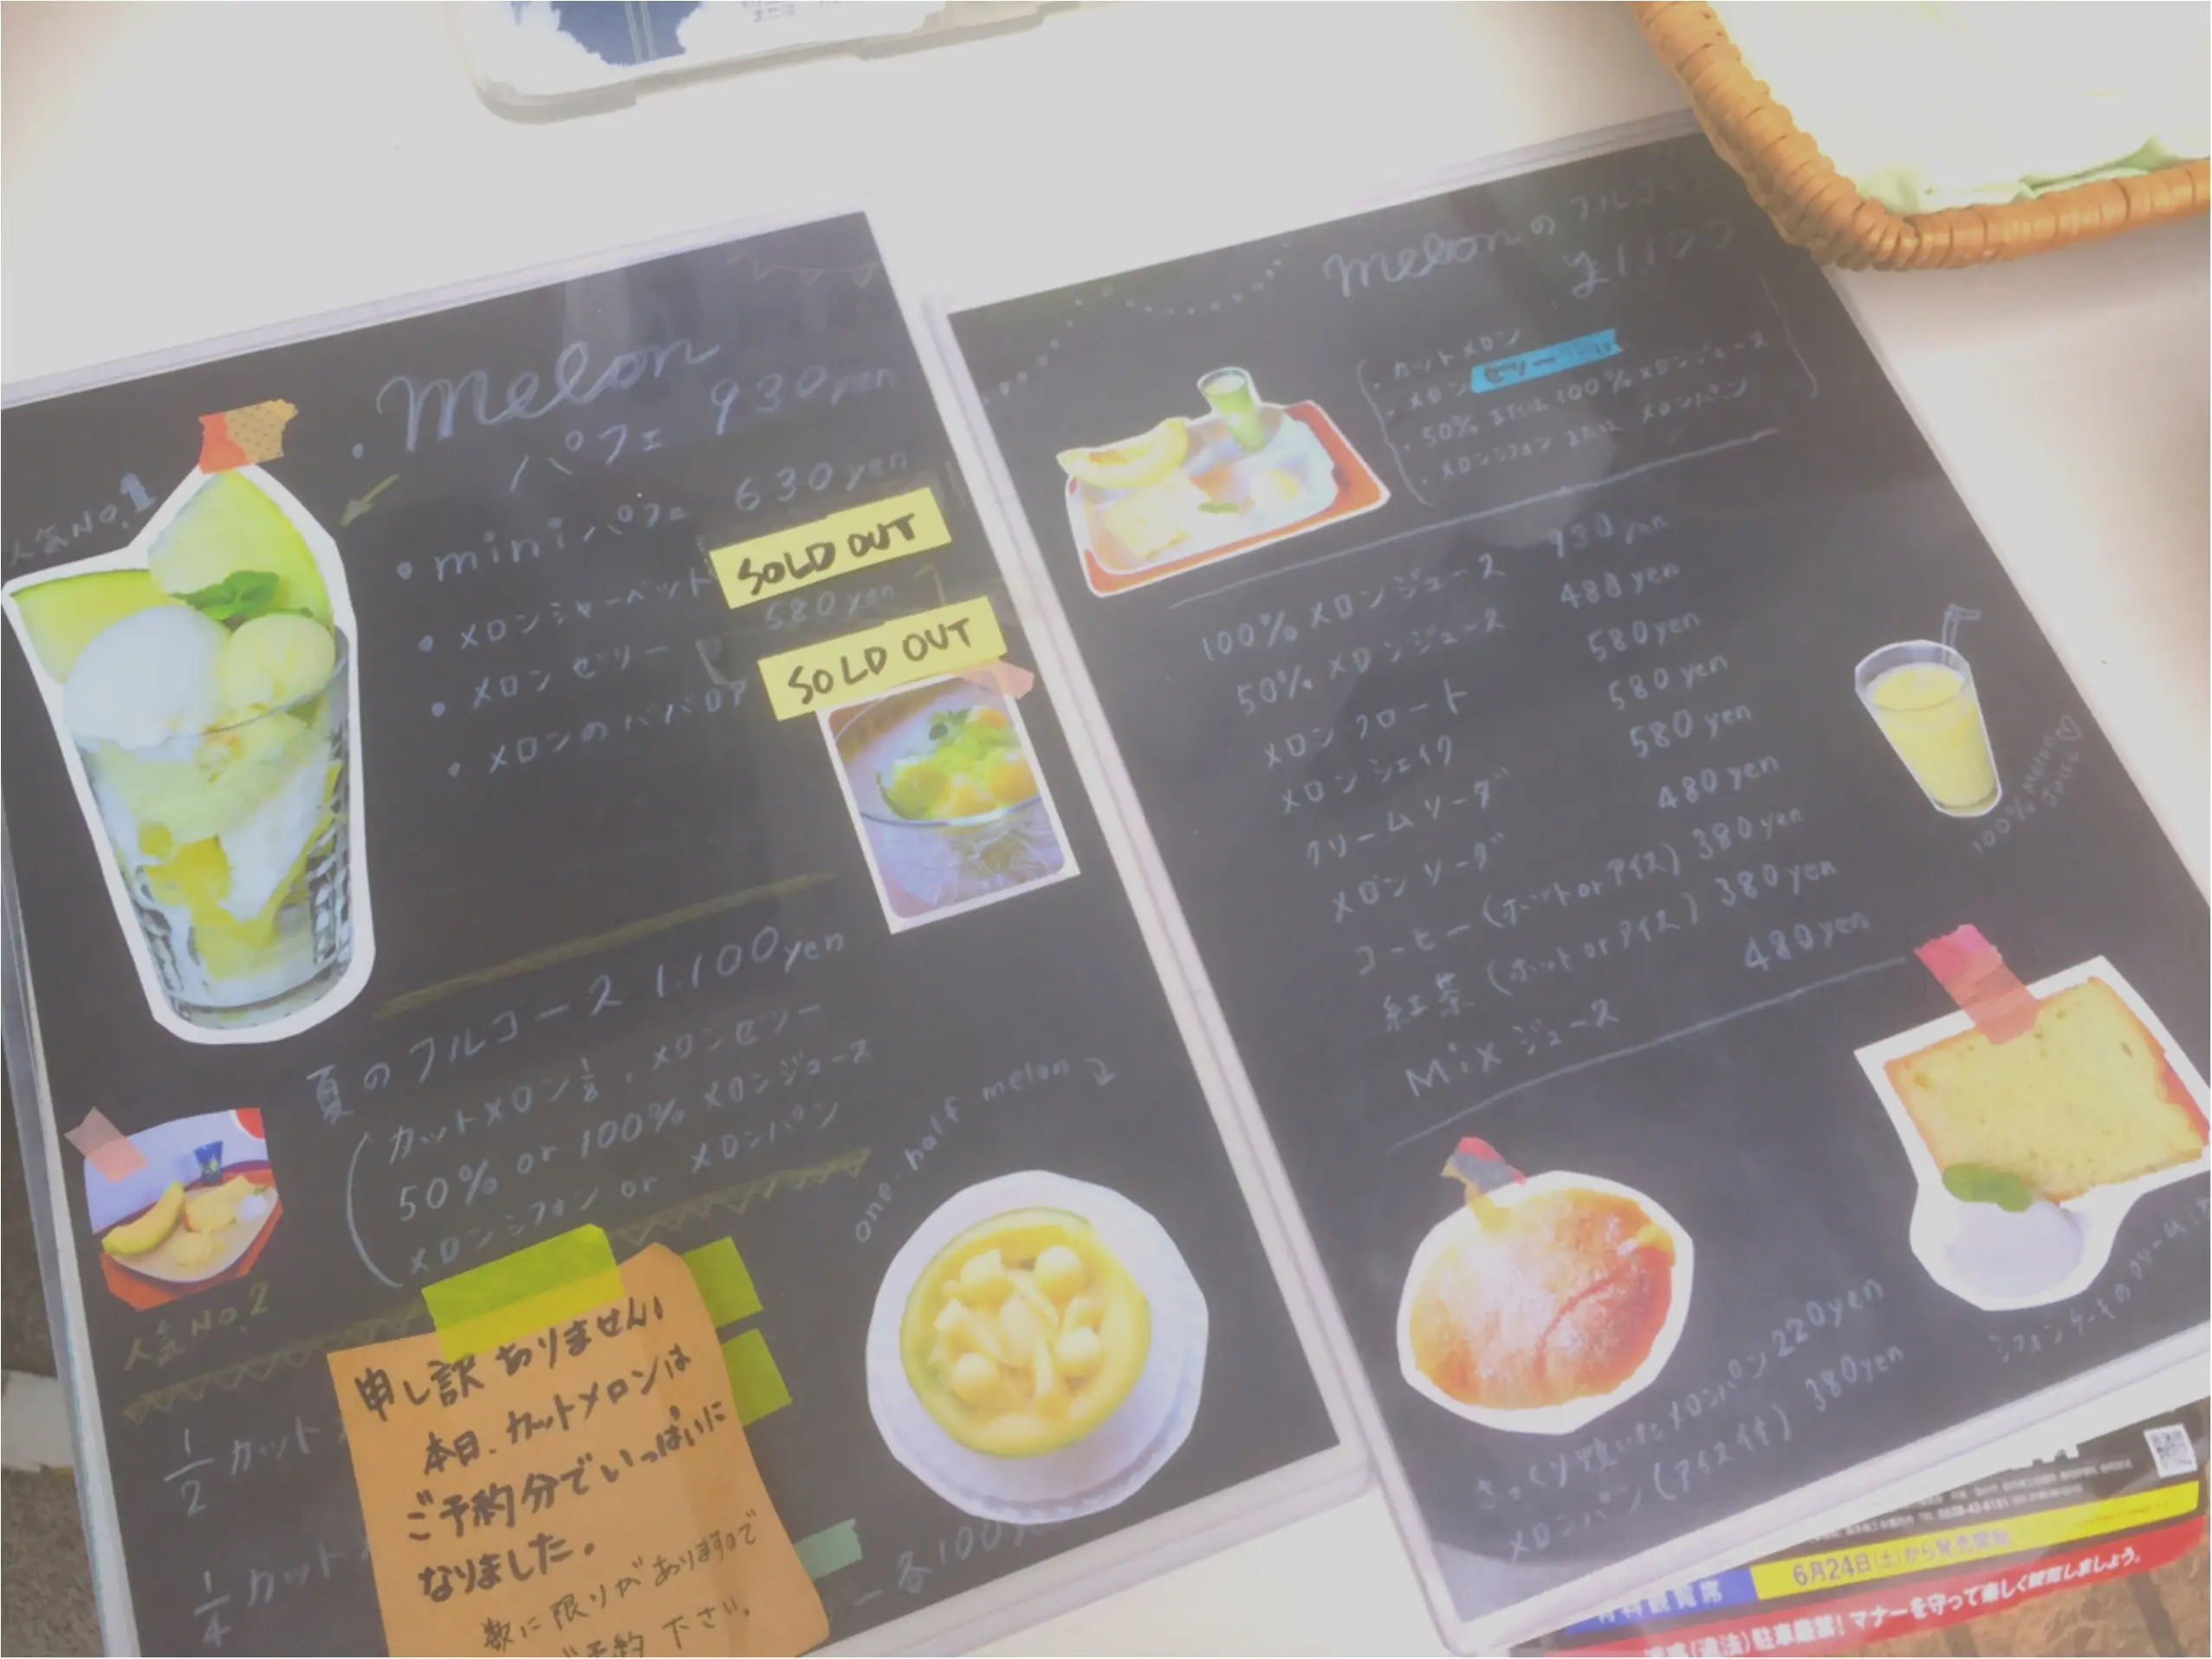 人気No.1
melon
パフェ 930yen
miniパフェ 630yen
メロンシャーベット SOLD OUT
メロンゼリー 580yen
メロンのババロア SOLD OUT
夏のフルコース 1.100yen
カットメロン 1/8 . メロンゼリー
50% or 100% メロンジュース
メロンシフォン or メロンパン
人気No.2
one-half-melon
1/2 カット
1/4 カット
申し訳ありません!
本日、カットメロンは
ご予約分でいっぱいに
なりました。
数に限りがありますので
ご予約下さい。
各100
melonの フルコー
¥1.100
・カットメロン
・メロンゼリー
・50% または 100% メロンジュース
・メロンシフォン または メロンパン
100% メロンジュース 930yen
50% メロンジュース 480yen
メロンフロート 580yen
メロンシェイク 580yen
クリームソーダ 580yen
メロンソーダ 480yen
コーヒー (ホット or アイス) 380yen
紅茶 (ホット or アイス) 380yen
Mix ジュース 480yen
100% melon♡
juice
さっくり焼いたメロンパン 220yen
メロンパン (アイス付) 380yen
シフォンケーキのクリーム
6月24日(土)から発売開始
(違法)駐車厳禁! マナーを守って楽しく観覧しましょう。